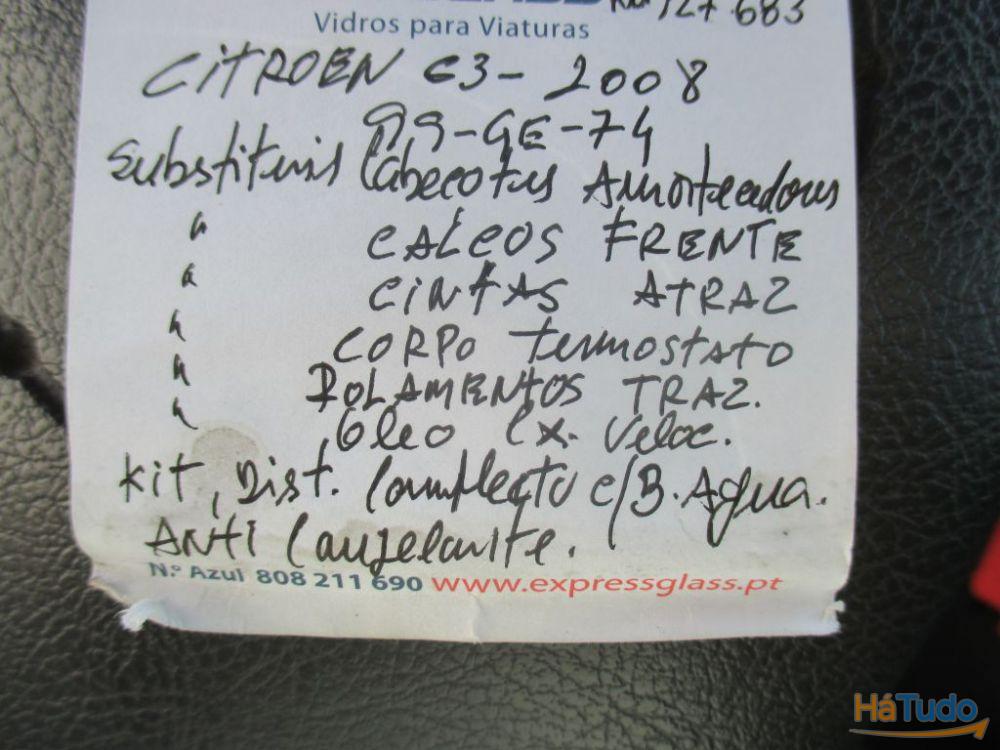 127.683
Vidros para Viaturas
CITROEN C3 - 2008
99-GE-74
Substituis Cabecotes Amortecedores
" CALÇOS FRENTE
" CINTAS ATRAZ
" CORPO termostato
" ROLAMENTOS TRAZ.
" óleo Cx. Veloc.
Kit, Dist. Complecto c/B. Agua.
ANTI Congelante.
N.º Azul 808 211 690 www.expressglass.pt
HáTudo